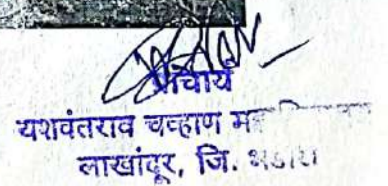 प्राचार्य
यशवंतराव चव्हाण
लाखांदूर, जि. भंडारा